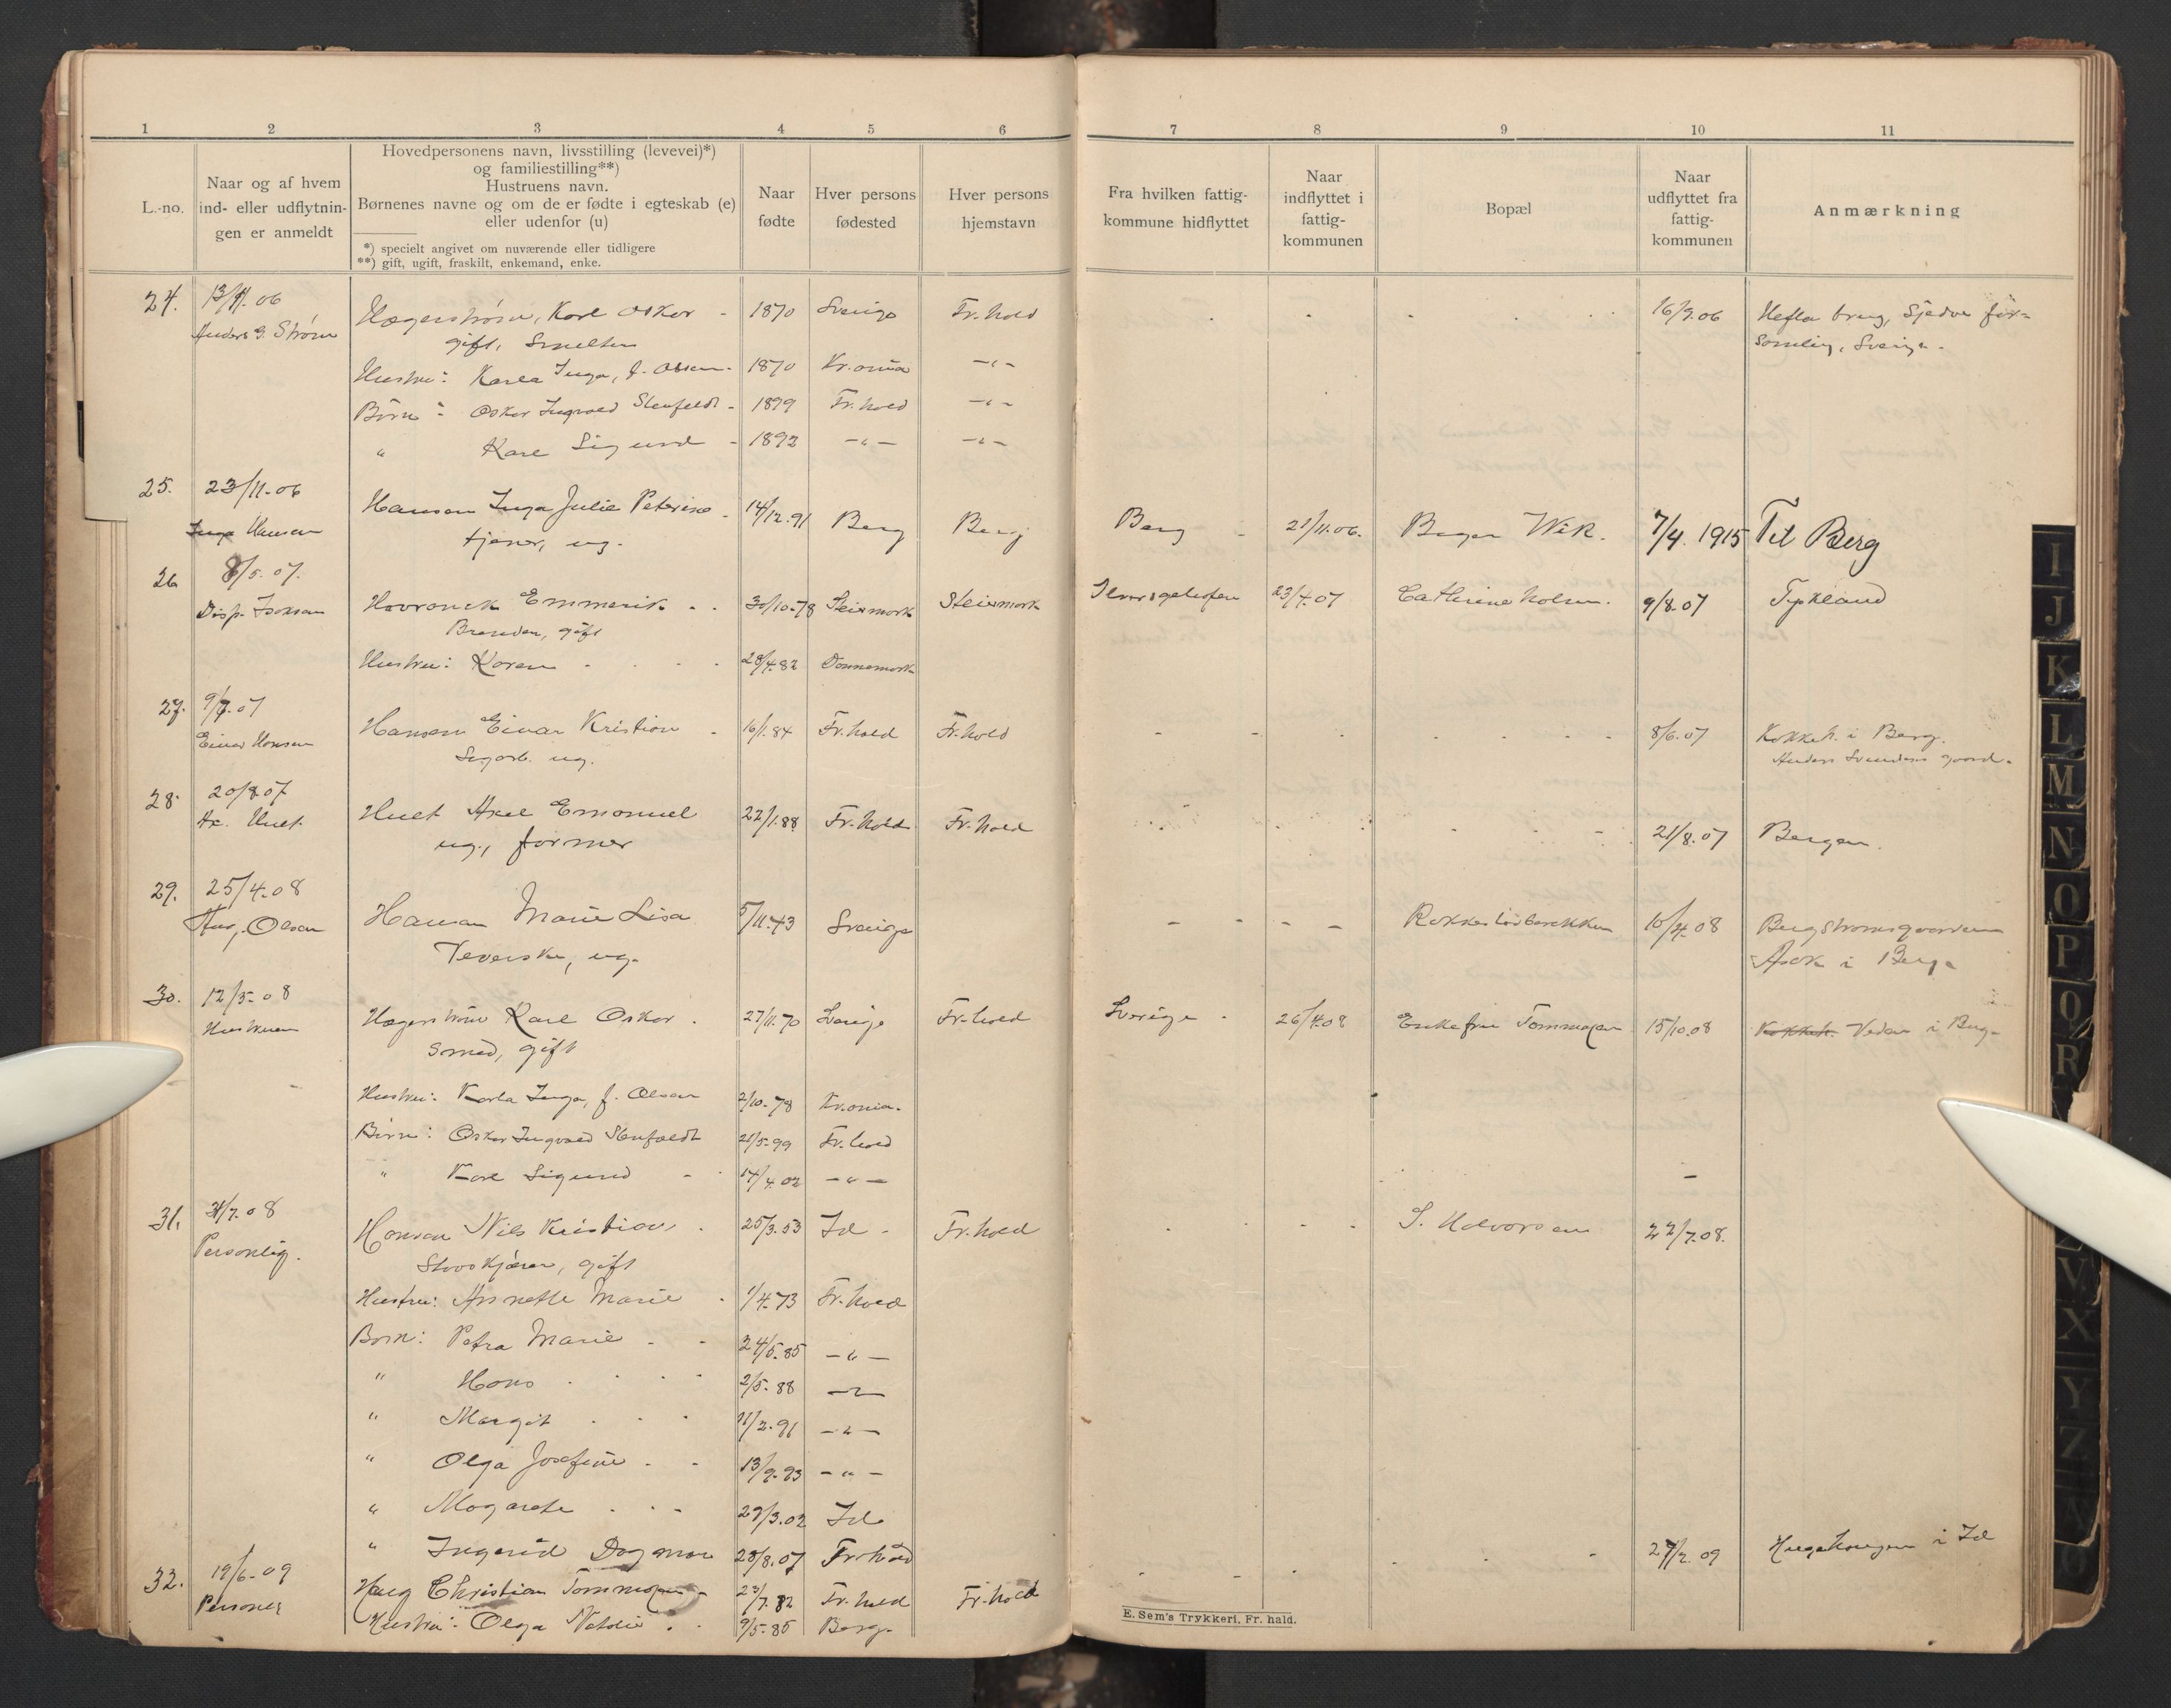 1 2 3 4 5 6 7 8 9 10 11
L.-no.
Naar og af hvem
ind- eller udflytnin-
gen er anmeldt
Hovedpersonens navn, livsstilling (levevei)*)
og familiestilling**)
Hustruens navn.
Børnenes navne og om de er fødte i egteskab (e)
eller udenfor (u)
*) specielt angivet om nuværende eller tidligere
**) gift, ugift, fraskilt, enkemand, enke.
Naar
fødte
Hver persons
fødested
Hver persons
hjemstavn
Fra hvilken fattig-
kommune hidflyttet
Naar
indflyttet i
fattig-
kommunen
Bopæl
Naar
udflyttet fra
fattig-
kommunen
Anmærkning
24. 06 Hægerstrøm, Karl Oskar - 1870 Sverige Fr.hald 16/9.06
Anders G. Strøm gift, Smelter
Hustru: Karla Inga, f. Olsen - 1870 Kr.ania -"-
Børn: Oskar Ingvald Stenfeldt - 1899 Fr.hald -"-
" Karl Sigurd - 1892 -"- -"-
25. 23/11-06 Hansen Inga Julie Petrine - 14/12.91 Berg Berg Berg - 21/11.06. Bager Wik. 7/4. 1915 Til Berg
Inga Hansen tjener, ug.
26 8/5.07. Emmerik 30/10-78 Steiermark Steiermark 23/4.07 Cathrineholm. 9/8.07 Tyskland
Disp. Isaksen gift
Hustru: Karen 28/4.82 Dannemark
27. 07 Hansen Einar Kristian - 16/1.84 Fr.hald Fr.hald 8/6.07 i Berg.
Einar Hansen Sagarb. ug. Anders Svendsens gaard.
28. 20/8.07 Huet Axel Emanuel 22/1.88 Fr.hald Fr.hald 21/8.07 Bergen.
Ax. Huet ug., former
29. 25/4.08 Hansen Marie Lisa 5/11.43 Sverige 08
Olsen Veverske, ug. i Berg
30. 12/5-08 Hægerstrøm Karl Oskar . 27/11.70 Sverige Fr.hald Sverige - 26/4.08 Enkefru Tommesen 15/10.08 Veden i Berg
Hustruen Smed, gift
Hustru: Karla Inga, f. Olsen 2/10-78 Kr.ania.
Børn: Oskar Ingvald Stenfeldt 21/5-99 Fr.hald
" Karl Sigurd - 17/4.02 -"-
31. 7.08 Hansen Nils Kristian . 25/3.53 Id - Fr.hald S. Halvorsen 22/7.08.
Personlig. gift
Hustru: Annette Marie 1/4.73 Fr.hald
Børn: Petra Marie 24/5.85 -"-
" Hans 2/5-88 -"-
" Margit 11/2-91 -"-
" Olga Josefine 13/9-93 -"-
" Magarete 29/3.02 Id
" Ingerid Dagmar 28/8.07 Fr.hald
32. 19/6-09 Haug Christian Tommesen 7.82 Fr.hald Fr.hald 09 i Id
Hustru: Olga 9/5-85 Berg.
E. Sem's Trykkeri, Fr. hald.
I
J
K
L
M
N
O
P
Q
R
V
X
Y
Z